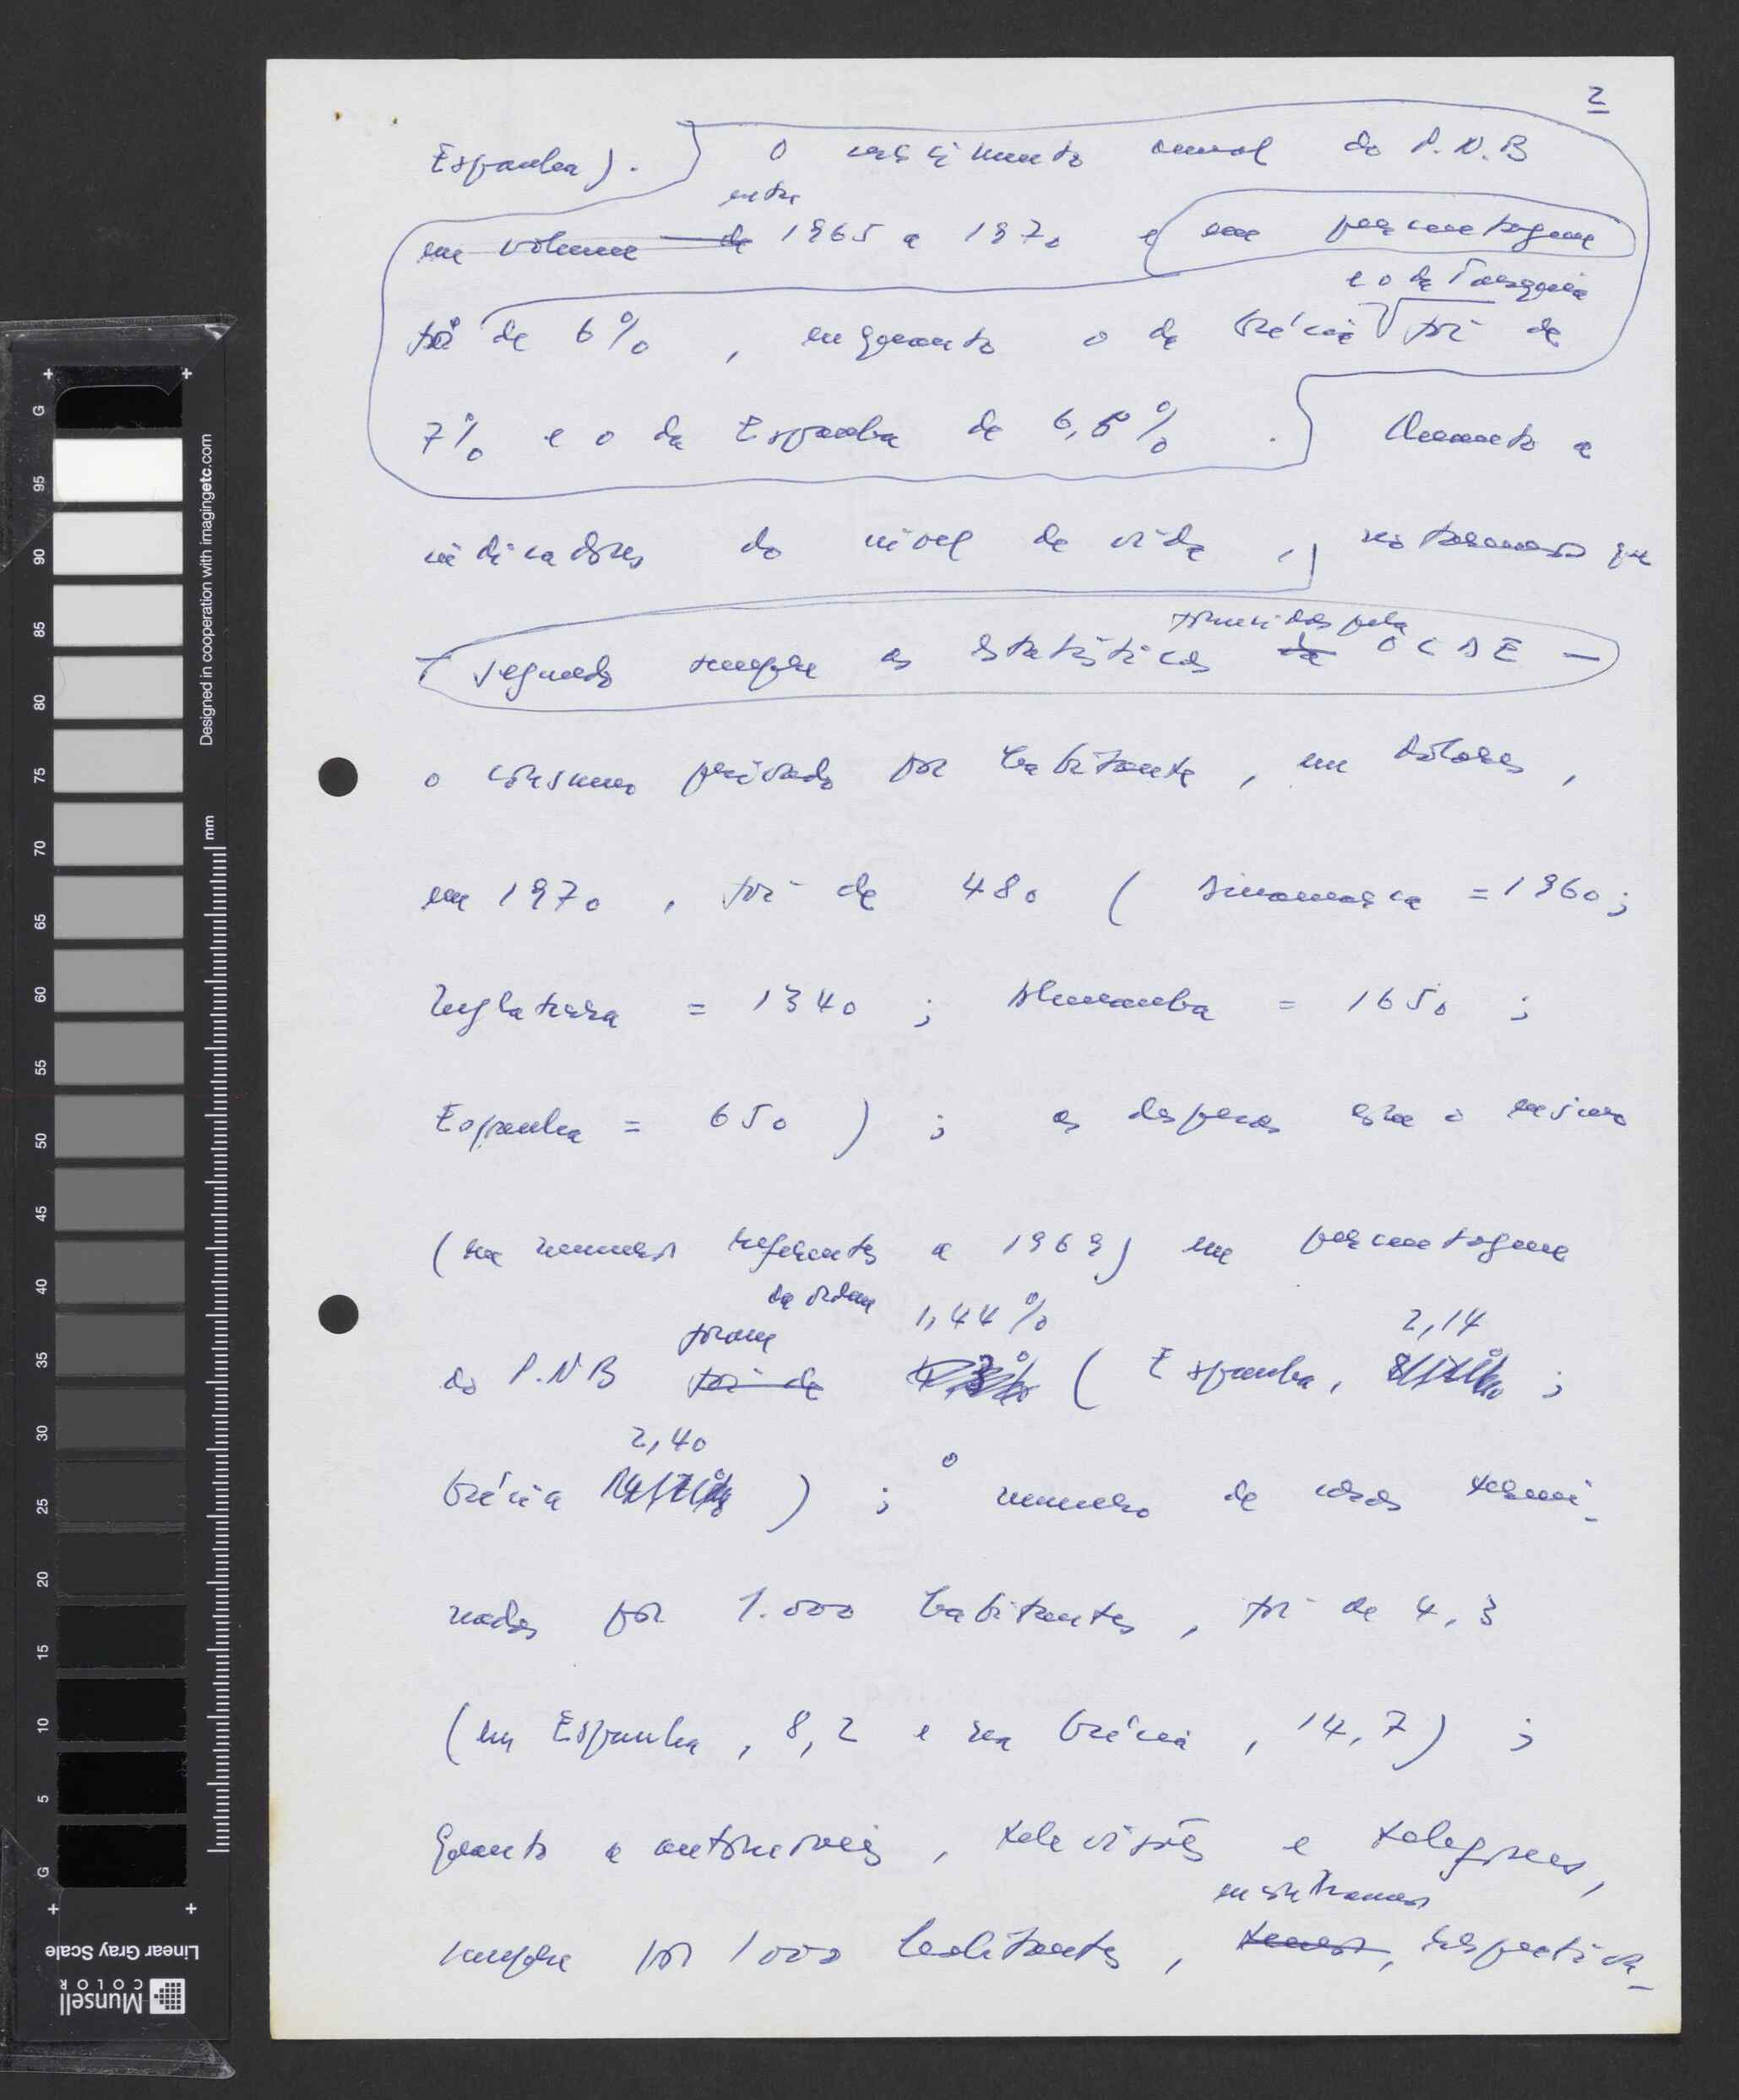 2
Espanha). O crescimento anual do P.N.B
entre
em volume de 1965 a 1970 e em percentagem
e o da Turquia
foi de 6%, enquanto o da Grécia foi de
7% e o da Espanha de 6,5%. Quanto a
indicadores do nível de vida, notaremos que
fornecidas pela
- segundo sempre as estatísticas da OCDE -
o consumo privado por habitante, em dólares,
em 1970, foi de 480 (Dinamarca = 1960;
Inglaterra = 1340; Alemanha = 1650;
Espanha = 650); as despesas com o ensino
(em números referentes a 1969) em percentagem
da ordem 1,44% 2,14
foram
do P.N.B foi de (Espanha, ;
2,40
Grécia ); o número de casas termi-
nadas por 1.000 habitantes, foi de 4,3
(em Espanha, 8,2 e na Grécia, 14,7);
quanto a automóveis, televisões e telefones,
encontramos
sempre por 1000 habitantes, temos, respectiva-
Designed in cooperation with imagingetc.com
mm
G 95 90 85 80 75 70 65 60 55 50 45 40 35 30 25 20 15 10 5 G
Linear Gray Scale
Munsell
COLOR